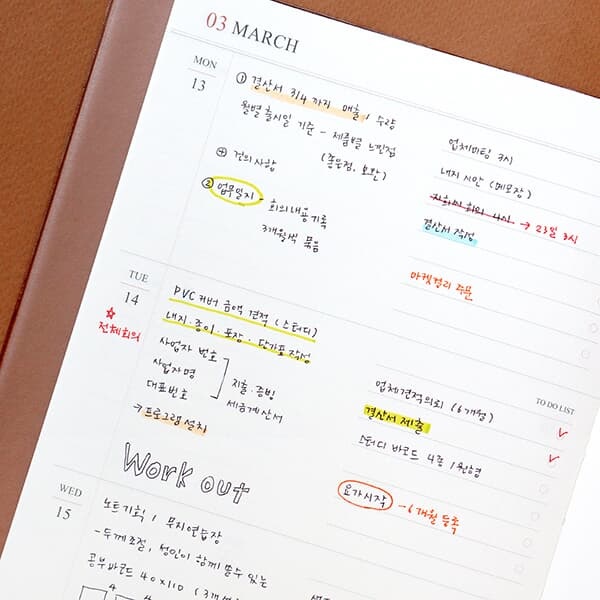 03 MARCH
MON
13
① 결산서 3/4 까지 매출 / 수량
월별 출시일 기준 - 제품별 느낀점
(좋은점, 보완)
+ 건의사항
② 업무일지 - 회의내용기록
3개월씩 묶음
업체미팅 3시
내지 시안 (메모장)
→ 23일 3시
결산서 작성
마켓컬리 주문
TUE
14
☆
전체회의
PVC 커버 금액 견적 (스터디)
내지·종이·포장·단가표 작성
사업자 번호
사업자명
대표번호
지출·증빙
세금계산서
→ 프로그램 설치
Work out
TO DO LIST
업체견적의뢰 (6개형)
결산서 제출
스터디 바코드 4종 /
요가시작 → 6개월 등록
WED
15
노트기획 / 무지연습장
- 두께조절, 성인이 함께 쓸수 있는
공부바코드 40x110
4